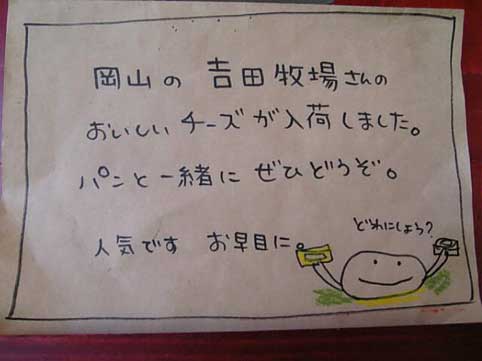 岡山の 吉田牧場さんの
おいしい チーズ が 入荷 しました。
パンと 一緒に ぜひどうぞ。
人気です お早目に。
どれにしよう?